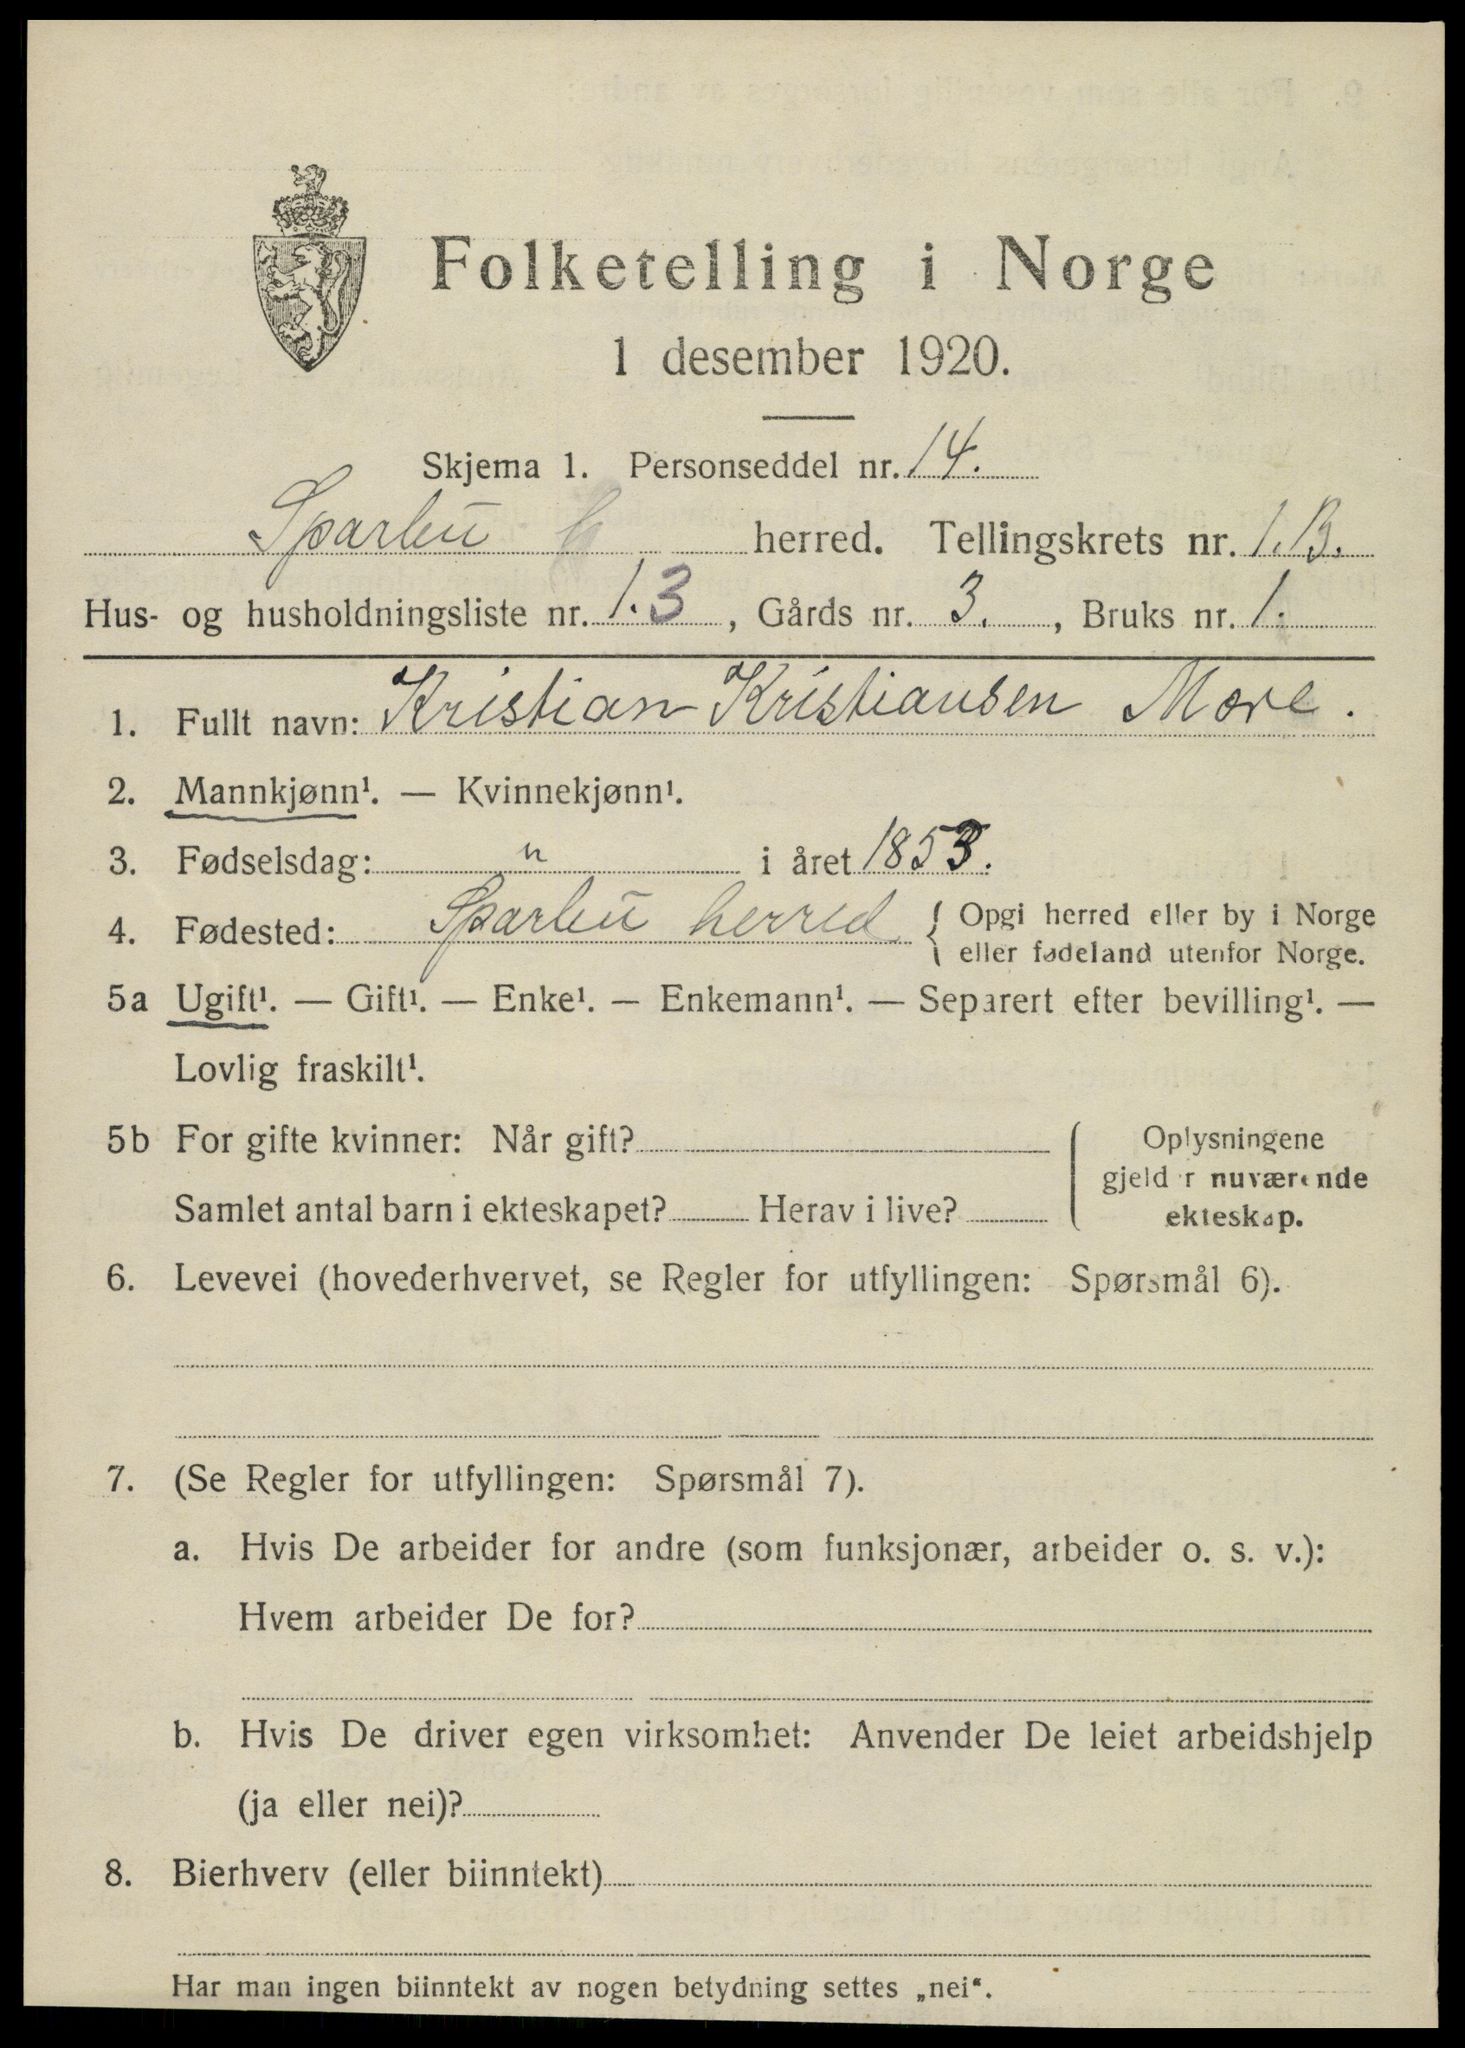 Folketelling i Norge
1 desember 1920.
Skjema 1. Personseddel nr. 14.
Sparbu herred. Tellingskrets nr. 1.B.
Hus- og husholdningsliste nr. 1.3, Gårds nr. 3., Bruks nr. 1.
1. Fullt navn: Kristian Kristiansen Mære.
2. Mannkjønn¹. — Kvinnekjønn¹.
3. Fødselsdag: " i året 1853.
4. Fødested: Sparbu herred { Opgi herred eller by i Norge
eller fødeland utenfor Norge.
5a Ugift¹. — Gift¹. — Enke¹. — Enkemann¹. — Separert efter bevilling¹. —
Lovlig fraskilt¹.
5b For gifte kvinner: Når gift?
Samlet antal barn i ekteskapet? Herav i live?
Oplysningene
gjelder nuværende
ekteskap.
6. Levevei (hovederhvervet, se Regler for utfyllingen: Spørsmål 6).
7. (Se Regler for utfyllingen: Spørsmål 7).
a. Hvis De arbeider for andre (som funksjonær, arbeider o. s. v.):
Hvem arbeider De for?
b. Hvis De driver egen virksomhet: Anvender De leiet arbeidshjelp
(ja eller nei)?
8. Bierhverv (eller biinntekt)
Har man ingen biinntekt av nogen betydning settes „nei“.